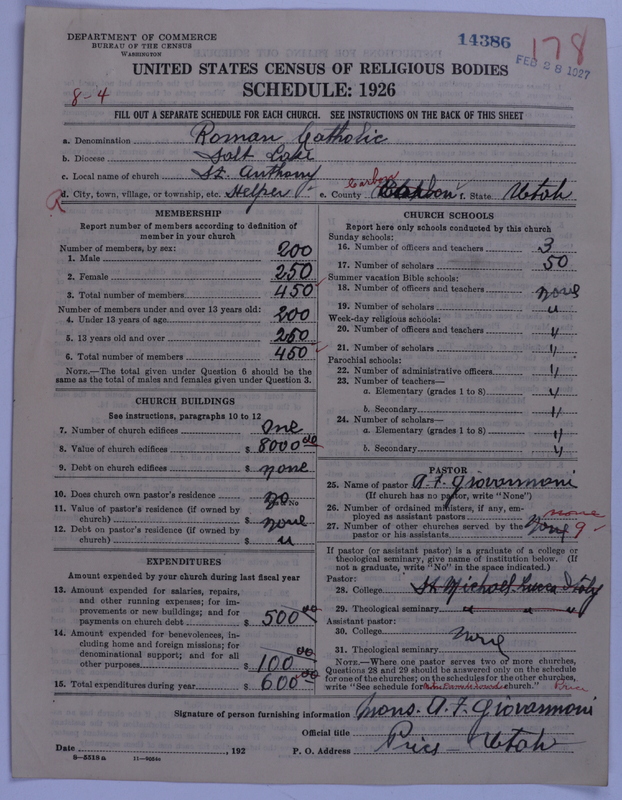 DEPARTMENT OF COMMERCE
BUREAU OF THE CENSUS
WASHINGTON
14386
178
FEB 28 1927
UNITED STATES CENSUS OF RELIGIOUS BODIES
8-4
SCHEDULE: 1926
FILL OUT A SEPARATE SCHEDULE FOR EACH CHURCH. SEE INSTRUCTIONS ON THE BACK OF THIS SHEET
a. Denomination Roman Catholic
b. Diocese Salt Lake
c. Local name of church St. Anthony
d. City, town, village, or township, etc. Helper e. County Carbon f. State Utah
MEMBERSHIP
Report number of members according to definition of
member in your church
Number of members, by sex:
1. Male 200
2. Female 250
3. Total number of members 450
Number of members under and over 13 years old:
4. Under 13 years of age 200
5. 13 years old and over 250
6. Total number of members 450
NOTE.—The total given under Question 6 should be the
same as the total of males and females given under Question 3.
CHURCH BUILDINGS
See instructions, paragraphs 10 to 12
7. Number of church edifices One
8. Value of church edifices $ 8000 00
9. Debt on church edifices $ none
10. Does church own pastor's residence no
Yes or No
11. Value of pastor's residence (if owned by
church) $ none
12. Debt on pastor's residence (if owned by
church) $ "
EXPENDITURES
Amount expended by your church during last fiscal year
13. Amount expended for salaries, repairs,
and other running expenses; for im-
provements or new buildings; and for
payments on church debt $ 500 00
14. Amount expended for benevolences, in-
cluding home and foreign missions; for
denominational support; and for all
other purposes $ 100 00
15. Total expenditures during year $ 600 00
CHURCH SCHOOLS
Report here only schools conducted by this church
Sunday schools:
16. Number of officers and teachers 3
17. Number of scholars 50
Summer vacation Bible schools:
18. Number of officers and teachers none
19. Number of scholars "
Week-day religious schools:
20. Number of officers and teachers "
21. Number of scholars "
Parochial schools:
22. Number of administrative officers "
23. Number of teachers—
a. Elementary (grades 1 to 8) "
b. Secondary "
24. Number of scholars—
a. Elementary (grades 1 to 8) "
b. Secondary "
PASTOR
25. Name of pastor A. F. Giovannoni
(If church has no pastor, write "None")
26. Number of ordained ministers, if any, em-
ployed as assistant pastors none
27. Number of other churches served by the
pastor or his assistants None 9
If pastor (or assistant pastor) is a graduate of a college or
theological seminary, give name of institution below. (If
not a graduate, write "No" in the space indicated.)
Pastor:
28. College St Michael Lucca Italy
29. Theological seminary " " "
Assistant pastor:
30. College None
31. Theological seminary
NOTE.—Where one pastor serves two or more churches,
Questions 28 and 29 should be answered only on the schedule
for one of the churches; on the schedules for the other churches,
write "See schedule for church." Price
Signature of person furnishing information Mons. A. F. Giovannoni
Official title
Date , 192 P. O. Address Price Utah
8-5519a 11-9054c